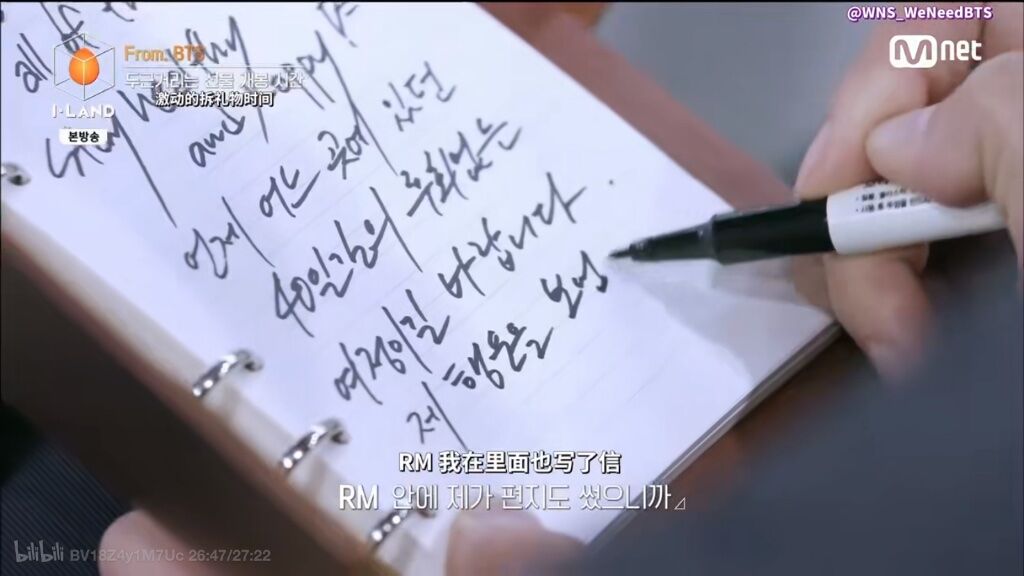 @WNS_WeNeedBTS
Mnet
From: BTS
두근거리는 선물 개봉 시간
激动的拆礼物时间
I·LAND
본방송
all
Stay healthy
and happy
언제 어느 곳에 있던
40일간의 후회없는
여정이길 바랍니다.
제 행운을 보냅
RM 我在里面也写了信
RM 안에 제가 편지도 썼으니까
bilibili BV18Z4y1M7Uc 26:47/27:22